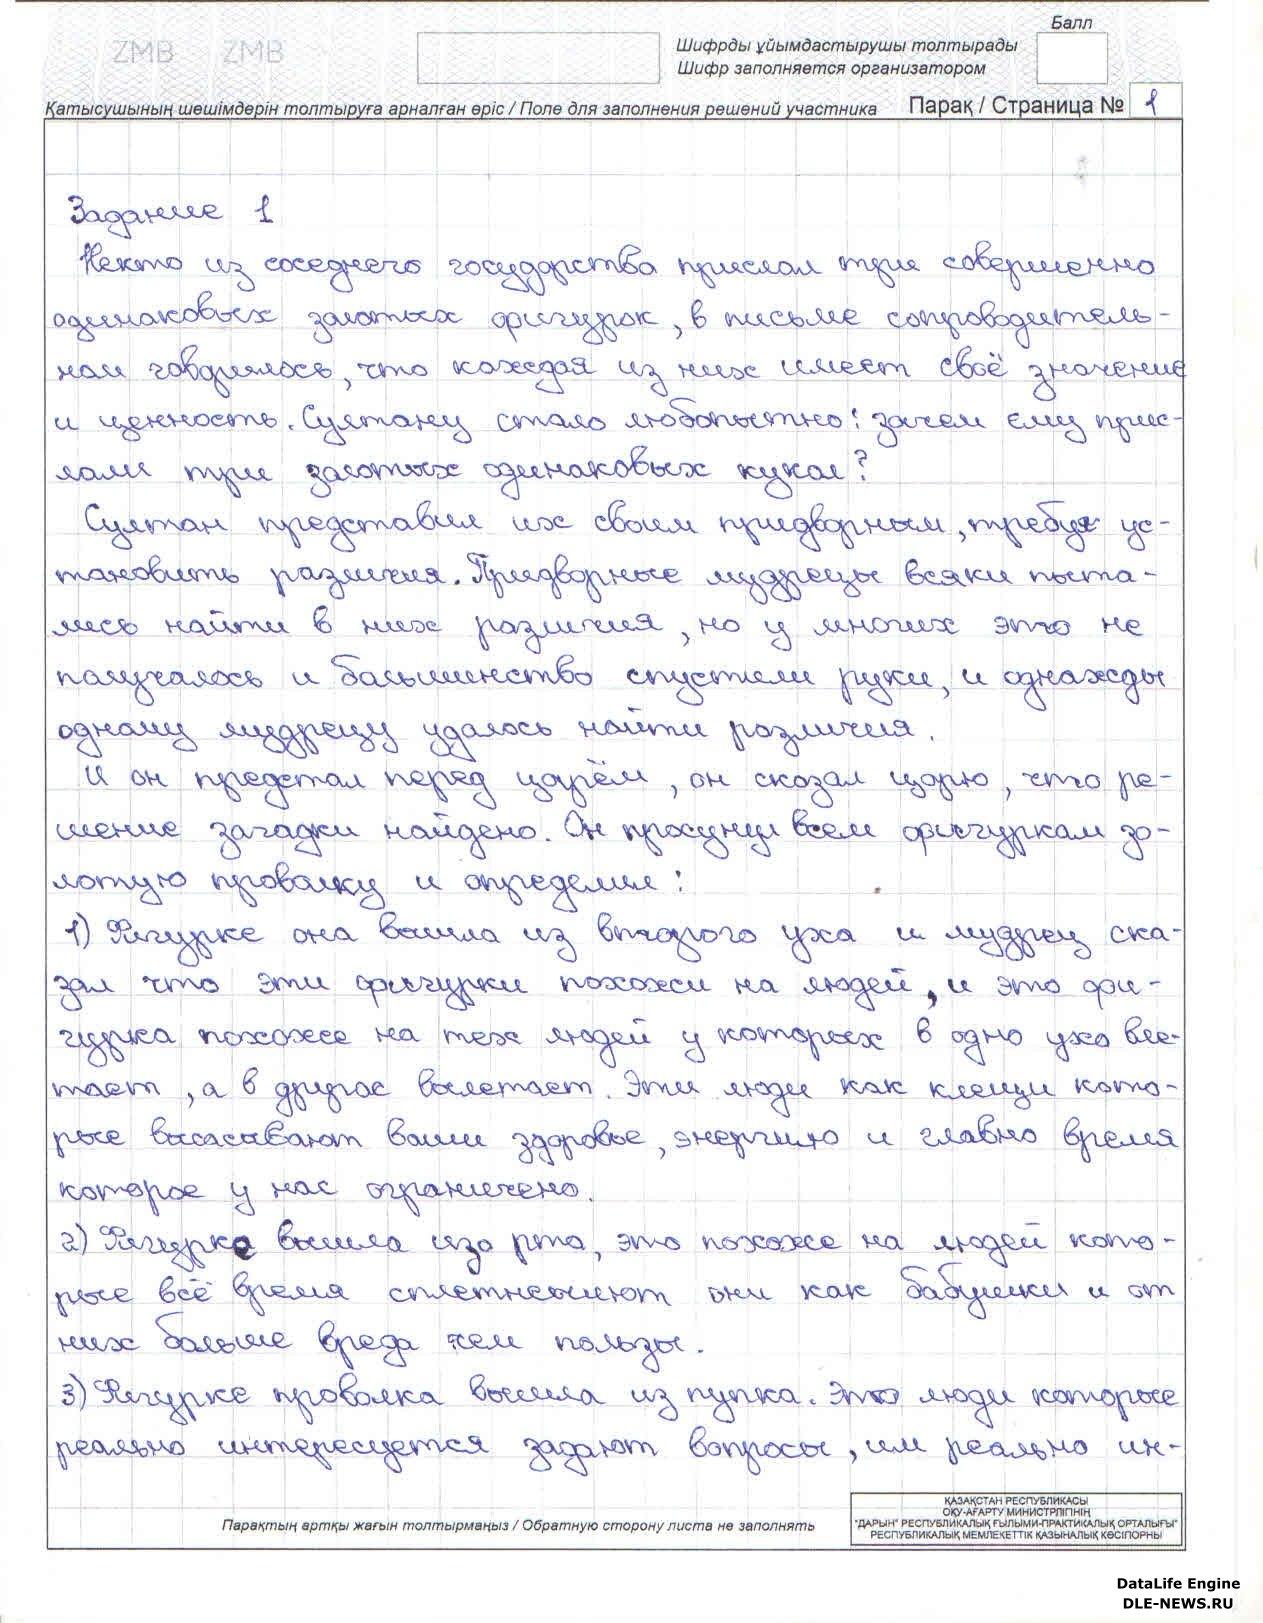 ZMB ZMB
Балл
Шифрды ұйымдастырушы толтырады
Шифр заполняется организатором
Қатысушының шешімдерін толтыруға арналған өріс / Поле для заполнения решений участника
Парақ / Страница № 1
Задание 1
Некто из соседнего государства прислал три совершенно
одинаковых золотых фигурок, в письме сопроводитель-
ном говорилось, что каждая из них имеет своё значение
и ценность. Султану стало любопытно: зачем ему прис-
лали три золотых одинаковых кукол?
Султан представил их своим придворным, требуя ус-
тановить различия. Придворные мудрецы всяки пыта-
лись найти в них различия, но у многих это не
получалось и большинство спустили руки, и однажды
одному мудрецу удалось найти различия.
И он предстал перед царём, он сказал царю, что ре-
шение загадки найдено. Он просунул всем фигуркам зо-
лотую проволку и определил:
1) Фигурке она вышла из второго уха и мудрец ска-
зал что эти фигурки похожи на людей, и это фи-
гурка похоже на тех людей у которых в одно ухо вле-
тает, а в другое вылетает. Эти люди как клещи кото-
рые высасывают ваши здоровье, энергию и главно время
которое у нас ограничено.
2) Фигурке вышла изо рта, это похоже на людей кото-
рые всё время сплетнечают они как бабушки и от
них больше вреда чем пользы.
3) Фигурке проволка вышла из пупка. Это люди которые
реально интересуется задают вопросы, им реально ин-
Парақтың артқы жағын толтырмаңыз / Обратную сторону листа не заполнять
ҚАЗАҚСТАН РЕСПУБЛИКАСЫ
ОҚУ-АҒАРТУ МИНИСТРЛІГІНІҢ
"ДАРЫН" РЕСПУБЛИКАЛЫҚ ҒЫЛЫМИ-ПРАКТИКАЛЫҚ ОРТАЛЫҒЫ"
РЕСПУБЛИКАЛЫҚ МЕМЛЕКЕТТІК ҚАЗЫНАЛЫҚ КӘСІПОРНЫ
DataLife Engine
DLE-NEWS.RU